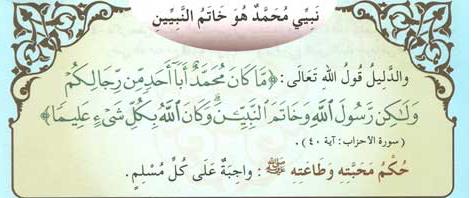 نَبِيِّي مُحَمَّدٌ هُوَ خَاتَمُ النَّبِيِّينِ
والدَّلِيلُ قَولُ اللهِ تَعَالَى: ﴿مَّا كَانَ مُحَمَّدٌ أَبَآ أَحَدٍ مِّن رِّجَالِكُمْ
وَلَٰكِن رَّسُولَ ٱللَّهِ وَخَاتَمَ ٱلنَّبِيِّـۧنَ ۗ وَكَانَ ٱللَّهُ بِكُلِّ شَىْءٍ عَلِيمًا﴾
(سورة الأحزاب: آية ٤٠).
حُكْمُ مَحَبَّتِهِ وَطَاعَتِهِ ﷺ : واجِبَةٌ عَلَى كُلِّ مُسْلِمٍ.